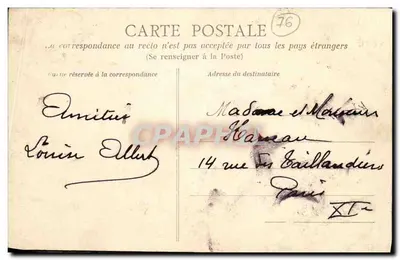 76
CARTE POSTALE
La correspondance au recto n'est pas acceptée par tous les pays étrangers
(Se renseigner à la Poste)
réservée à la correspondance
Adresse du destinataire
Amitiés
Louise Albert
Madame et Monsieur
Hameau
14 rue des Taillandiers
Paris
XIe
CPARAMA